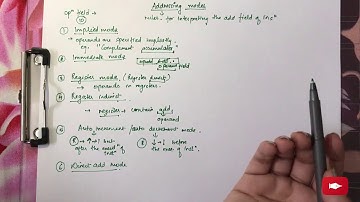 Addressing modes
opⁿ field →
10
rules for interpreting the add field of insⁿ
① Implied mode
→ operands are specified implicitly.
eg. "Complement accumulator"
② Immediate mode
operand field
③ Register mode (Register direct)
→ operands in registers.
④ Register indirect
→ register → contains add
operand
⑤ Auto increment / auto decrement mode.
R → ↑ → 1 but
R ↓ → 1 before
after the execⁿ of
the exec of insⁿ
insⁿ
⑥ Direct add mode